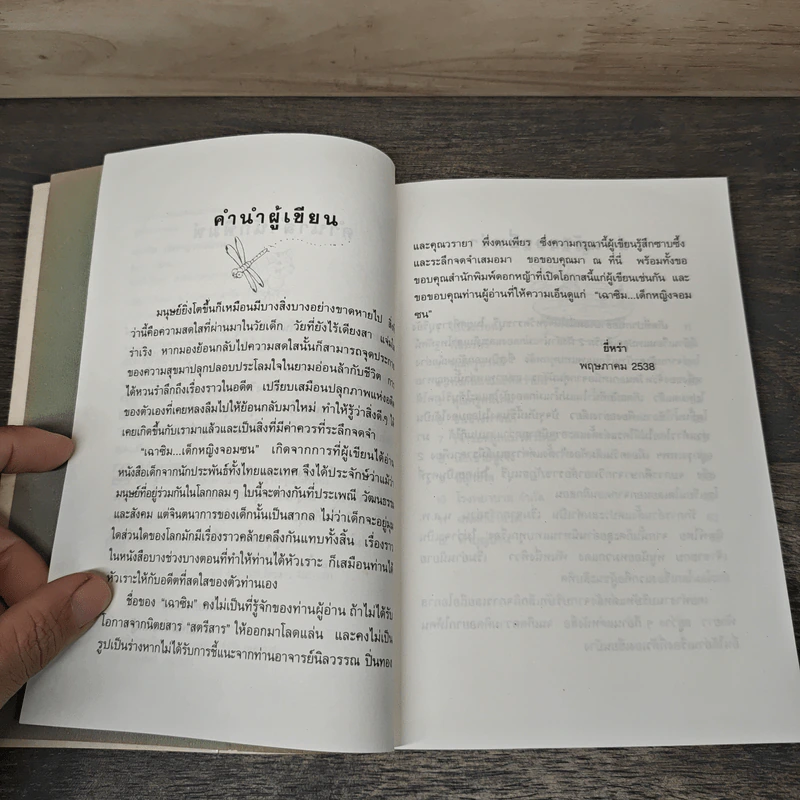 คำนำผู้เขียน
มนุษย์ยิ่งโตขึ้นก็เหมือนมีบางสิ่งบางอย่างขาดหายไป
ว่านี้คือความสดใสที่ผ่านมาในวัยเด็ก วัยที่ยังไร้เดียงสา
ร่าเริง หากมองย้อนกลับไปความสดใสนั้นก็สามารถจุดประกาย
ของความสุขมาปลุกปลอบประโลมใจในยามอ่อนล้ากับชีวิต
ได้หวนรำลึกถึงเรื่องราวในอดีต เปรียบเสมือนปลุกภาพแห่งอดีต
ของตัวเองที่เคยหลงลืมไปให้ย้อนกลับมาใหม่ ทำให้รู้ว่าสิ่งดีๆ
เคยเกิดขึ้นกับเรามาแล้วและเป็นสิ่งที่มีค่าควรที่ระลึกจดจำ
“เฉาซิม...เด็กหญิงจอมซน” เกิดจากการที่ผู้เขียนได้อ่าน
หนังสือเด็กจากนักประพันธ์ทั้งไทยและเทศ จึงได้ประจักษ์ว่าแม้ว่า
มนุษย์ที่อยู่ร่วมกันในโลกกลมๆ ใบนี้จะต่างกันที่ประเพณี วัฒนธรรม
และสังคม แต่จินตนาการของเด็กนั้นเป็นสากล ไม่ว่าเด็กจะอยู่มุม
ใดส่วนใดของโลกมักมีเรื่องราวคล้ายคลึงกันแทบทั้งสิ้น เรื่องราว
ในหนังสือบางช่วงบางตอนที่ทำให้ท่านได้หัวเราะ ก็เสมือนท่านได้
หัวเราะให้กับอดีตที่สดใสของตัวท่านเอง
ชื่อของ “เฉาซิม” คงไม่เป็นที่รู้จักของท่านผู้อ่าน ถ้าไม่ได้รับ
โอกาสจากนิตยสาร “สตรีสาร” ให้ออกมาโลดแล่น และคงไม่เป็น
รูปเป็นร่างหากไม่ได้รับการชี้แนะจากท่านอาจารย์นิลวรรณ ปิ่นทอง
และคุณวรายา พึ่งตนเพียร ซึ่งความกรุณานี้ผู้เขียนรู้สึกซาบซึ้ง
และระลึกจดจำเสมอมา ขอขอบคุณมา ณ ที่นี่ พร้อมทั้งขอ
ขอบคุณสำนักพิมพ์ดอกหญ้าที่เปิดโอกาสนี้แก่ผู้เขียนเช่นกัน และ
ขอขอบคุณท่านผู้อ่านที่ให้ความเอ็นดูแก่ “เฉาซิม...เด็กหญิงจอม
ซน”
ยี่หร่า
พฤษภาคม 2538